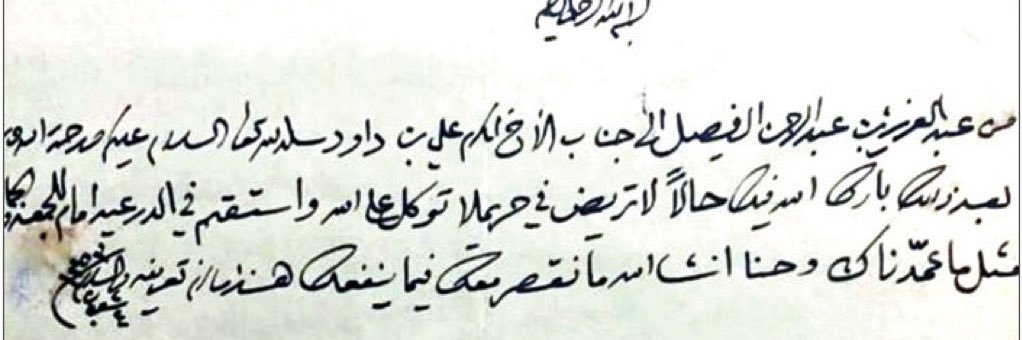 بسم الله الرحمن الرحيم
من عبد العزيز بن عبد الرحمن الفيصل الى جناب الأخ المكرم علي بن داود سلمه الله تعالى السلام عليكم ورحمة الله
بعد ذلك بارك الله فيك حالاً لا تريض في حريملا توكل على الله واستقم في الدرعيه امام للجمعه
مثل ما عمّدناك وحنا انشاء الله ما نقصر معك فيما ينفعك هذا مالزم تعريفه والسلام